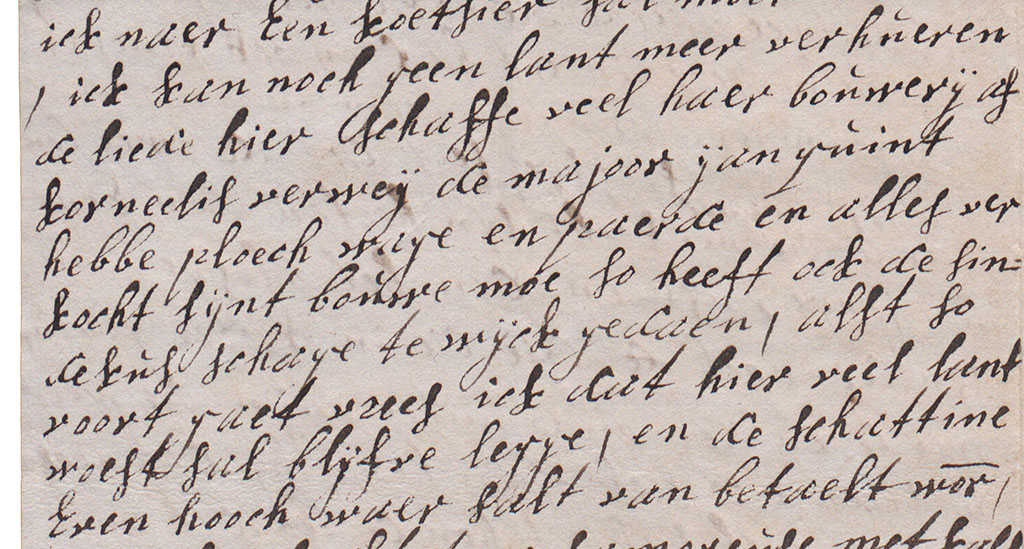 ick naer Een koetsier sal moe
, ick kan noch geen lant meer verhueren
de liede hier schaffe veel haer bouwerÿ af
korneelis verweÿ de majoor ÿan quint
hebbe ploech wage en paerde en alles ver
kocht sÿnt bouwe moe so heeft ock de sin=
dekus schage te wÿck gedaen, alst so
voort gaet vrees ick dat hier veel lant
woest sal blÿfve legge, en de schattine
Even hooch waer salt van betaelt wor,
met